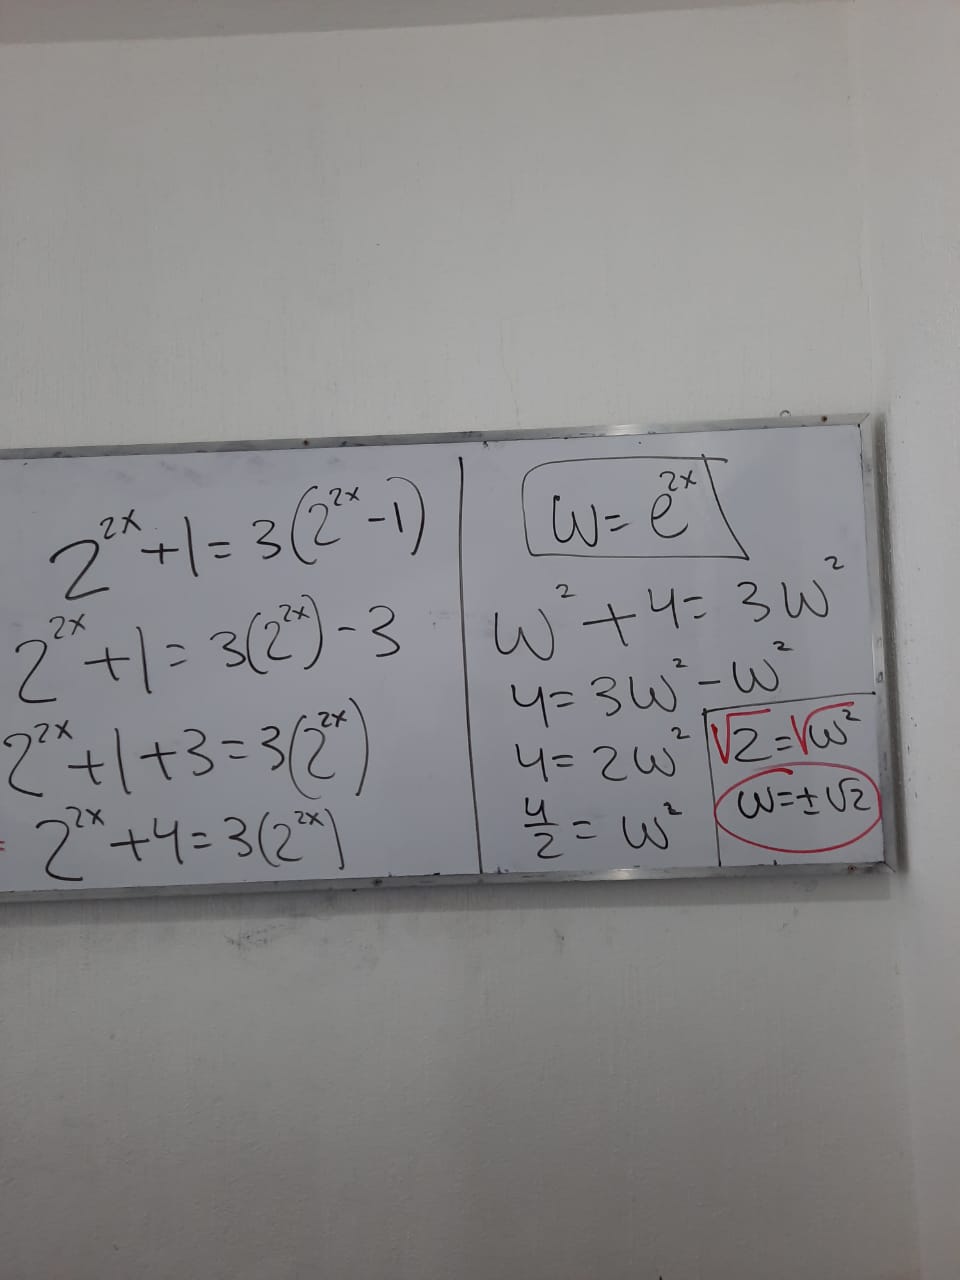 2^{2x} + 1 = 3(2^{2x} - 1)
2^{2x} + 1 = 3(2^{2x}) - 3
2^{2x} + 1 + 3 = 3(2^{2x})
= 2^{2x} + 4 = 3(2^{2x})
w = e^{2x}
w^2 + 4 = 3w^2
4 = 3w^2 - w^2
4 = 2w^2
4/2 = w^2
√2 = √w^2
w = ± √2